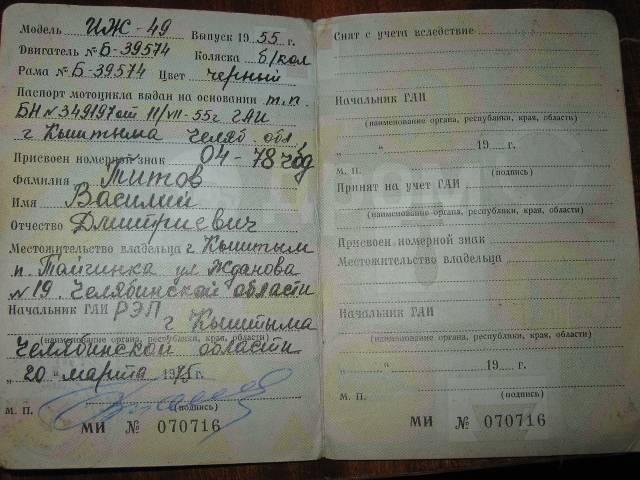 Модель ИЖ-49 Выпуск 1955 г.
Двигатель № Б-39574 Коляска б/кол
Рама № Б-39574 Цвет черный
Паспорт мотоцикла выдан на основании т.п.
БН № 349197 от 11/VII-55г ГАИ
г Кыштыма Челяб. обл
Присвоен номерной знак 04-78 чбд
Фамилия Титов
Имя Василий
Отчество Дмитриевич
Местожительство владельца г Кыштым
п. Тайгинка ул Жданова
№ 19. Челябинской области
Начальник ГАИ РЭП
г Кыштыма
(наименование органа, республики, края, области)
Челябинской области
„ 20 " марта 1975 г.
М. П. (подпись)
МИ № 070716
Снят с учета вследствие
Начальник ГАИ
(наименование органа, республики, края, области)
„ " 19 г.
М. П. (подпись)
Принят на учет ГАИ
(наименование органа, республики, края, области)
Присвоен номерной знак
Местожительство владельца
Начальник ГАИ
(наименование органа, республики, края, области)
„ " 19 г.
М. П. (подпись)
МИ № 070716